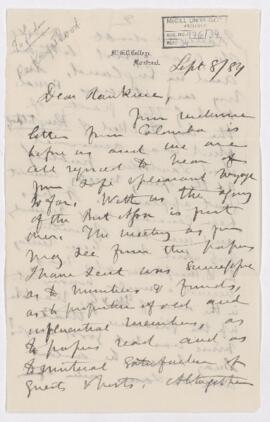 McGILL UNIVERSITY
ARCHIVES
ACC. NO. 1
REF.
McGill College,
Montreal.
Sept 8/84
Dear Rankine,
Your welcome
letter from Colombo is
before us and we are
all rejoiced to hear of
your safe & pleasant voyage
so far. With us the agony
of the Brit Assn is just
over. The meeting as you
may see from the papers
I have sent was successful
as to numbers & funds,
as to proportion of old and
influential members, as
to papers read and as
to mutual satisfaction of
guests & hosts. Altogether